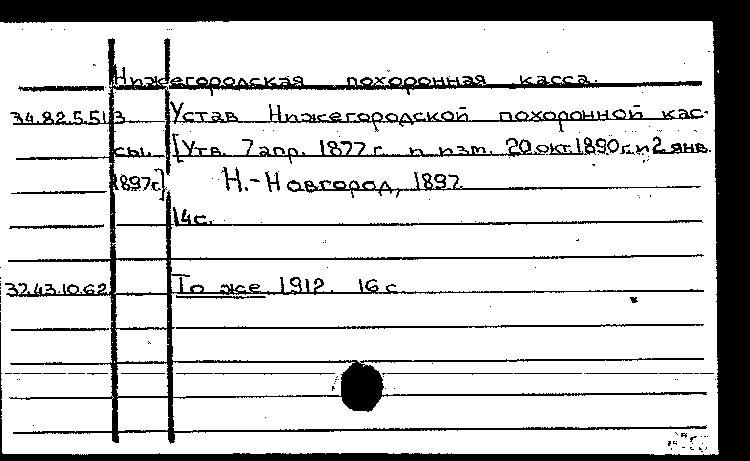 Нижегородская похоронная касса.
34.82.5.513 Устав Нижегородской похоронной кас-
сы. [Утв. 7 апр. 1877 г. и изм. 20 окт. 1890 г. и 2 янв.
1897г.] Н.-Новгород, 1897
14с.
32.43.10.62 То же 1912. 16 с